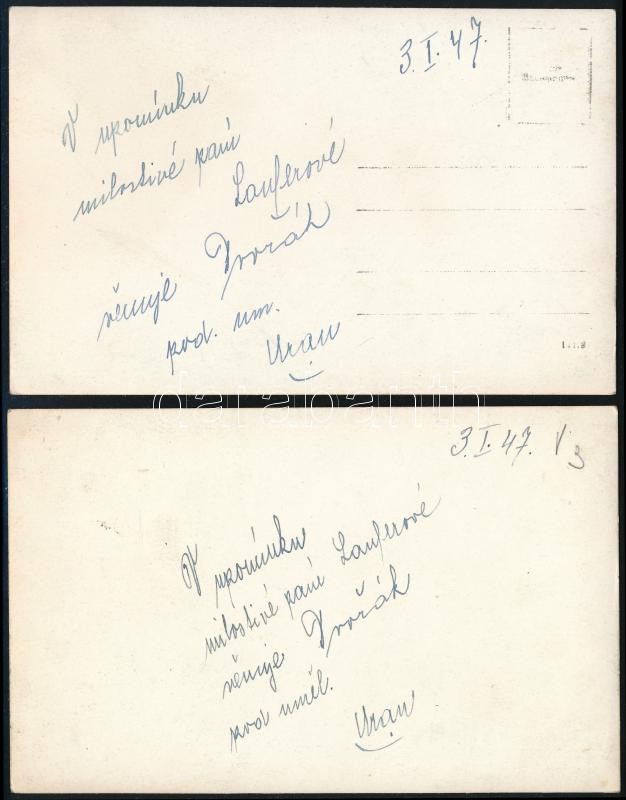 3.I.47.
V upomínku
milostivé paní
Lauferové
věnuje Dvořák
pod. um.
Uran
darabanth
3.I.47. V
3
V upomínku
milostivé paní Lauferové
věnuje Dvořák
pod uměl.
Uran